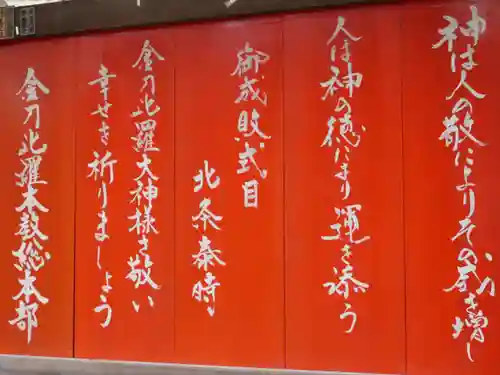 神は人の敬によりその威を増し
人は神の徳により運を添う
御成敗式目
北条泰時
金刀比羅大神様を敬い
幸せを祈りましょう
金刀比羅本教総本部